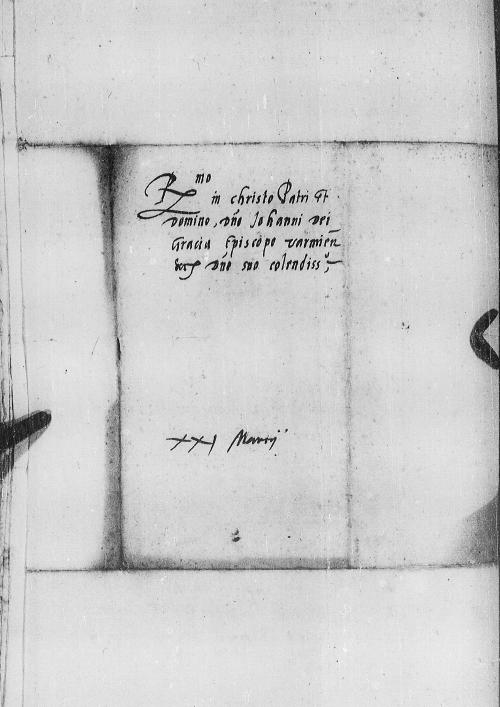 R mo
in christo Patri Et
Domino, Dño Johanni Dei
Gracia Episcopo varmieñ
Dño suo colendiss
XXI Marcij